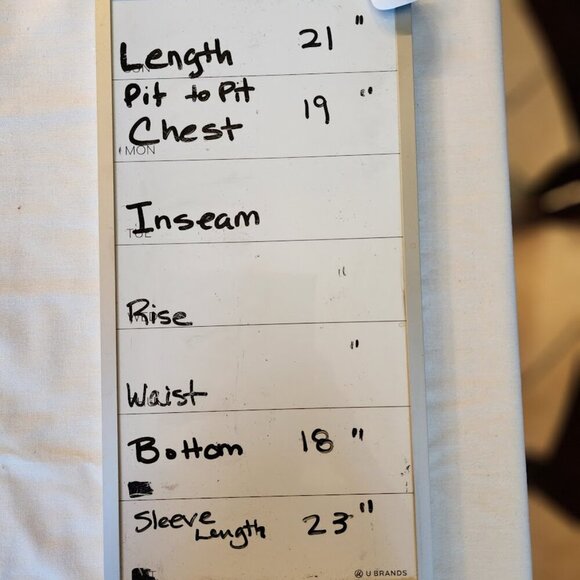 Length 21 "
Pit to Pit
Chest 19 "
MON
Inseam
"
Rise
"
Waist
Bottom 18 "
Sleeve
Length 23 "
U BRANDS